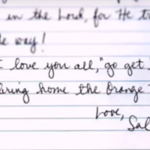 in the Lord, for He
way!
I love you all, "go get
bring home the Orange
Love,
Sal